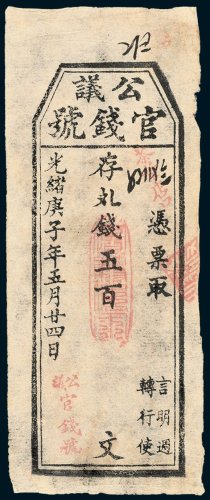 公議
官錢號
憑票取
存札錢五百文
光緒庚子年五月廿四日
言明過
轉行使
公議
官錢號